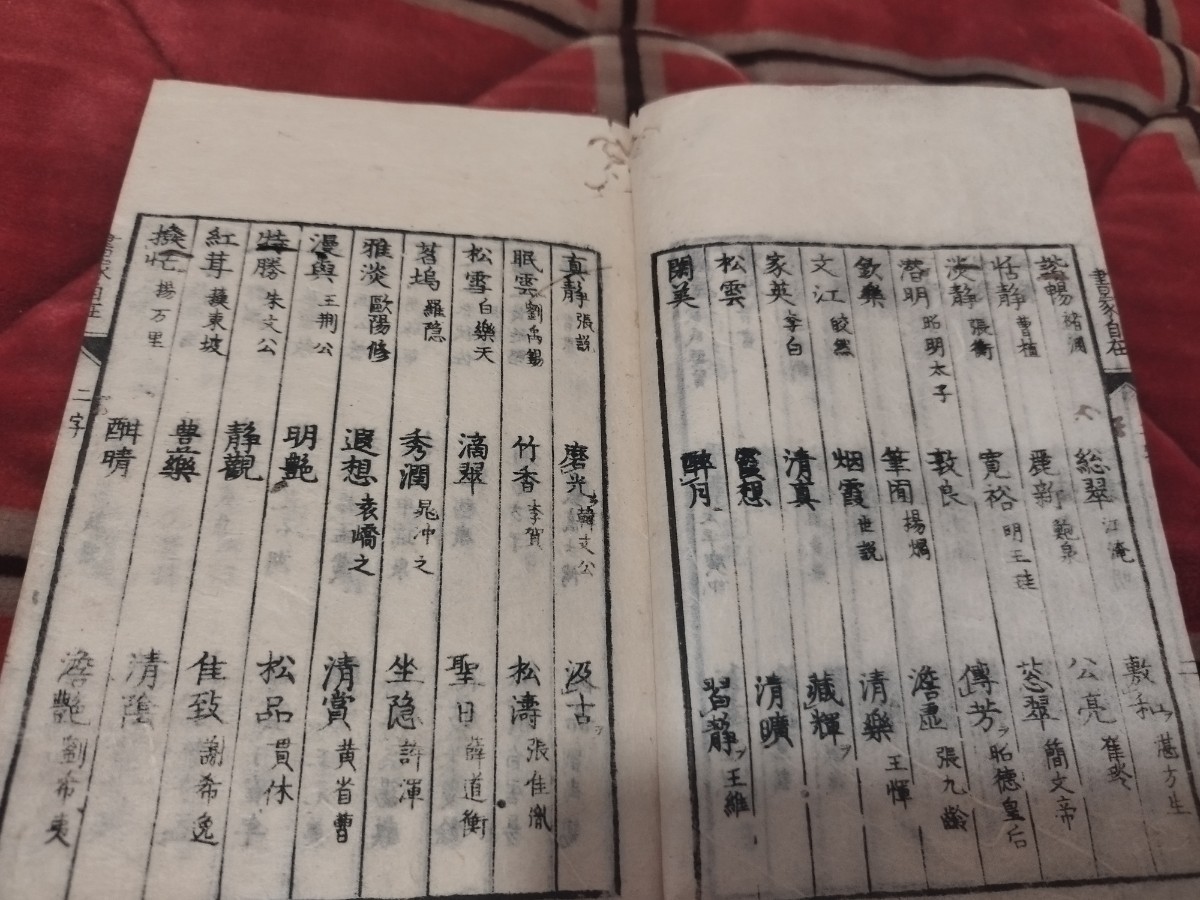 書家自在
暢 緒淵 総翠 江淹 敷和ヲ 湛方生
恬静 曹植 麗新 范泉 公亮 崔琰
淡静 張衡 寛裕 明王珪 葱翠 簡文帝
昭明太子 敦良 傳芳ヲ 昭德皇后
欽樂 筆圃 揚烱 澹虚 張九齢
文江 皎然 烟霞 世説 清樂 王惲
家英 李白 清真 藏輝ヲ
松雲 霞想 清曠
閑美 酔月 習静ヲ 王維
真静 張説 磨光ヲ 韓文公 汲古ヲ
眠雲 劉禹錫 竹香 李賀 松濤 張隹胤
松雪 白樂天 滴翠 聖日 薛道衡
茗塢 羅隠 秀潤 晁冲之 坐隠 許渾
雅淡 歐陽修 遐想 袁嶠之 清賞 黄省曹
漫與 王荆公 明艶 松品 貫休
特勝 朱文公 静觀 佳致 謝希逸
紅茸 蘓東坡 豊藥 清陰
撥忙 揚万里 酣晴 澹艶 劉希夷
書家自在
二字